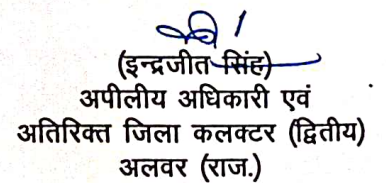 (इन्द्रजीत सिंह)
अपीलीय अधिकारी एवं
अतिरिक्त जिला कलक्टर (द्वितीय)
अलवर (राज.)